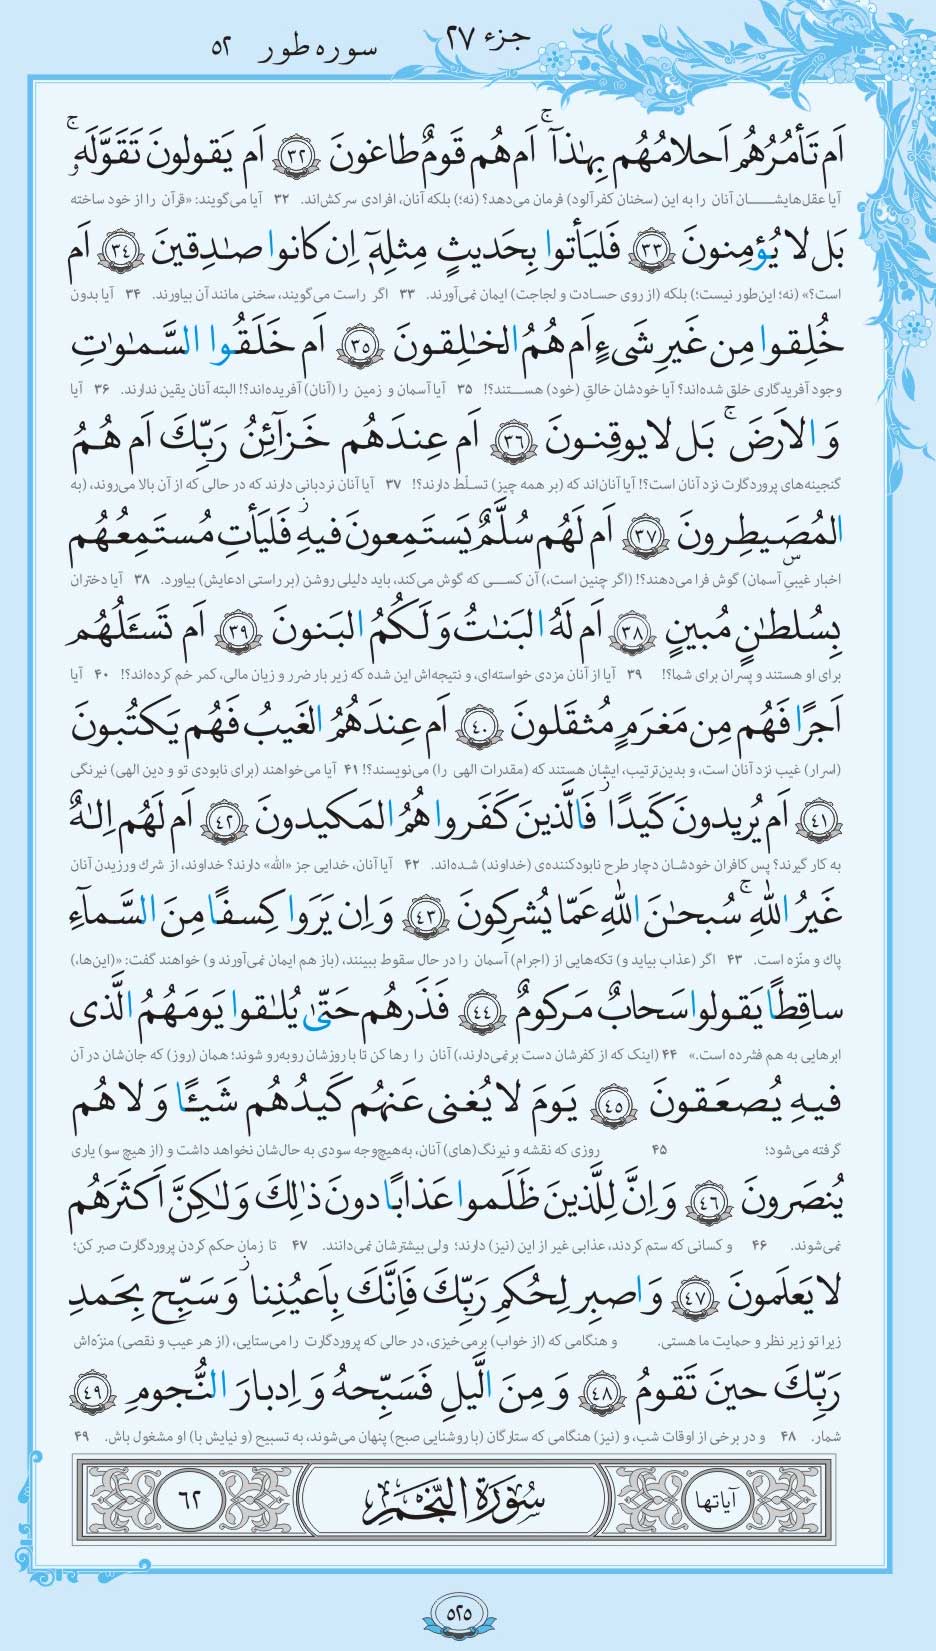 جزء ۲۷ سوره طور ۵۲
اَم تَأمُرُهُم اَحلامُهُم بِهٰذآ ۚ اَم هُم قَومٌ طاغونَ ﴿٣٢﴾ اَم يَقولونَ تَقَوَّلَهٗ ۚ
آیا عقل‌هایشان آنان را به این (سخنان کفرآلود) فرمان می‌دهد؟ (نه؛) بلکه آنان، افرادی سرکش‌اند. ۳۲ آیا می‌گویند: «قرآن را از خود ساخته
بَل لا يُؤمِنونَ ﴿٣٣﴾ فَليَأتوا بِحَديثٍ مِثلِهٖٓ اِن كانوا صٰدِقينَ ﴿٣٤﴾ اَم
است؟» (نه؛ این‌طور نیست؛) بلکه (از روی حسادت و لجاجت) ایمان نمی‌آورند. ۳۳ اگر راست می‌گویند، سخنی مانند آن بیاورند. ۳۴ آیا بدون
خُلِقوا مِن غَيرِ شَیءٍ اَم هُمُ الخٰلِقونَ ﴿٣٥﴾ اَم خَلَقُوا السَّمٰوٰتِ
وجود آفریدگاری خلق شده‌اند؟ آیا خودشان خالقِ (خود) هستند؟! ۳۵ آیا آسمان و زمین را (آنان) آفریده‌اند؟! البته آنان یقین ندارند. ۳۶ آیا
وَ الاَرضَ ۚ بَل لا يوقِنونَ ﴿٣٦﴾ اَم عِندَهُم خَزآئِنُ رَبِّكَ اَم هُمُ
گنجینه‌های پروردگارت نزد آنان است؟! آیا آنان‌اند که (بر همه چیز) تسلّط دارند؟! ۳۷ آیا آنان نردبانی دارند که در حالی که از آن بالا می‌روند، (به
المُصَۣيطِرونَ ﴿٣٧﴾ اَم لَهُم سُلَّمٌ يَستَمِعونَ فيهِ ۖ فَليَأتِ مُستَمِعُهُم
اخبار غیبیِ آسمان) گوش فرا می‌دهند؟! (اگر چنین است،) آن کسی که گوش می‌کند، باید دلیلی روشن (بر راستی ادعایش) بیاورد. ۳۸ آیا دختران
بِسُلطٰنٍ مُبينٍ ﴿٣٨﴾ اَم لَهُ البَنٰتُ وَ لَكُمُ البَنونَ ﴿٣٩﴾ اَم تَسـَٔلُهُم
برای او هستند و پسران برای شما؟! ۳۹ آیا از آنان مزدی خواسته‌ای، و نتیجه‌اش این شده که زیر بار ضرر و زیان مالی، کمر خم کرده‌اند؟! ۴۰ آیا
اَجرًا فَهُم مِن مَغرَمٍ مُثقَلونَ ﴿٤٠﴾ اَم عِندَهُمُ الغَيبُ فَهُم يَكتُبونَ
(اسرار) غیب نزد آنان است، و بدین‌ترتیب، ایشان هستند که (مقدرات الهی را) می‌نویسند؟! ۴۱ آیا می‌خواهند (برای نابودی تو و دین الهی) نیرنگی
﴿٤١﴾ اَم يُريدونَ كَيدًا ۖ فَالَّذينَ كَفَروا هُمُ المَكيدونَ ﴿٤٢﴾ اَم لَهُم اِلٰهٌ
به کار گیرند؟ پس کافران خودشان دچار طرح نابودکننده‌ی (خداوند) شده‌اند. ۴۲ آیا آنان، خدایی جز «الله» دارند؟ خداوند، از شرک ورزیدن آنان
غَيرُ اللهِ ۚ سُبحٰنَ اللهِ عَمّا يُشرِكونَ ﴿٤٣﴾ وَ اِن يَرَوا كِسفًا مِنَ السَّمآءِ
پاک و منزّه است. ۴۳ اگر (عذاب بیاید و) تکه‌هایی از (اجرام) آسمان را در حال سقوط ببینند، (باز هم ایمان نمی‌آورند و) خواهند گفت: «(این‌ها،)
ساقِطًا يَقولوا سَحابٌ مَركومٌ ﴿٤٤﴾ فَذَرهُم حَتّىٰ يُلٰقوا يَومَهُمُ الَّذی
ابرهایی به هم فشرده است.» ۴۴ (اینک که از کفرشان دست برنمی‌دارند،) آنان را رها کن تا با روزشان روبه‌رو شوند؛ همان (روز) که جان‌شان در آن
فيهِ يُصعَقونَ ﴿٤٥﴾ يَومَ لا يُغنی عَنهُم كَيدُهُم شَيـًٔا وَ لا هُم
گرفته می‌شود؛ ۴۵ روزی که نقشه و نیرنگ(های) آنان، به‌هیچ‌وجه سودی به حال‌شان نخواهد داشت و (از هیچ سو) یاری
يُنصَرونَ ﴿٤٦﴾ وَ اِنَّ لِلَّذينَ ظَلَموا عَذابًا دونَ ذٰلِكَ وَ لٰكِنَّ اَكثَرَهُم
نمی‌شوند. ۴۶ و کسانی که ستم کردند، عذابی غیر از این (نیز) دارند؛ ولی بیشترشان نمی‌دانند. ۴۷ تا زمانِ حکم کردن پروردگارت صبر کن؛
لا يَعلَمونَ ﴿٤٧﴾ وَ اصبِر لِحُكمِ رَبِّكَ فَاِنَّكَ بِاَعيُنِنا ۖ وَ سَبِّح بِحَمدِ
زیرا تو زیر نظر و حمایت ما هستی. و هنگامی که (از خواب) برمی‌خیزی، در حالی که پروردگارت را می‌ستایی، (از هر عیب و نقصی) منزّه‌اش
رَبِّكَ حينَ تَقومُ ﴿٤٨﴾ وَ مِنَ الَّيلِ فَسَبِّحهُ وَ اِدبارَ النُّجومِ ﴿٤٩﴾
شمار. ۴۸ و در برخی از اوقات شب، و (نیز) هنگامی که ستارگان (با روشنایی صبح) پنهان می‌شوند، به تسبیح (و نیایش با) او مشغول باش. ۴۹
آیاتها سُورَةُ النَّجم ۶۲
۵۲۵